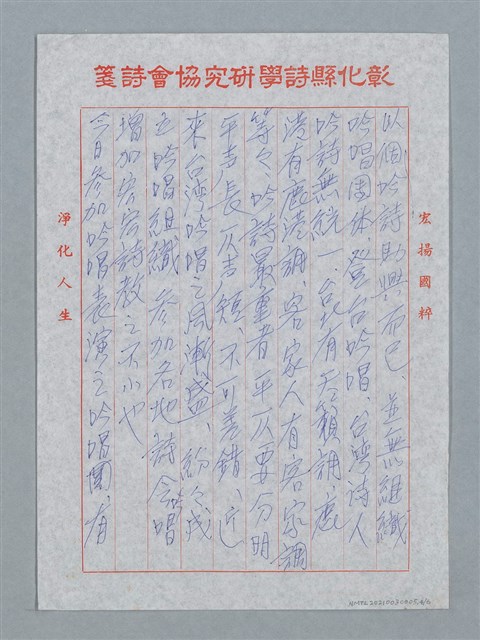 彰化縣詩學研究協會詩箋
宏揚國粹
以個吟詩助興而已、並無組織
吟唱團体、登台吟唱、台灣詩人
吟詩無統一、台北有天籟調、鹿
港有鹿港調、客家人有客家調
等々、吟詩最重者平仄要分明
平声長仄声短、不可差錯、近
來台灣吟唱之風漸盛、紛々成
立吟唱組織 參加各地詩會唱
增加宏詩教之不小也
今日參加吟唱表演之吟唱團、有
淨化人生
NMTL20210030005.4/6